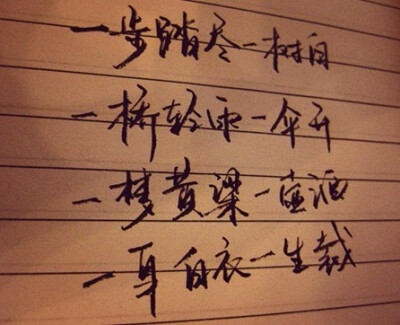 一步踏尽一树白
一桥轻雨一伞开
一梦黄梁一壶酒
一身白衣一生裁